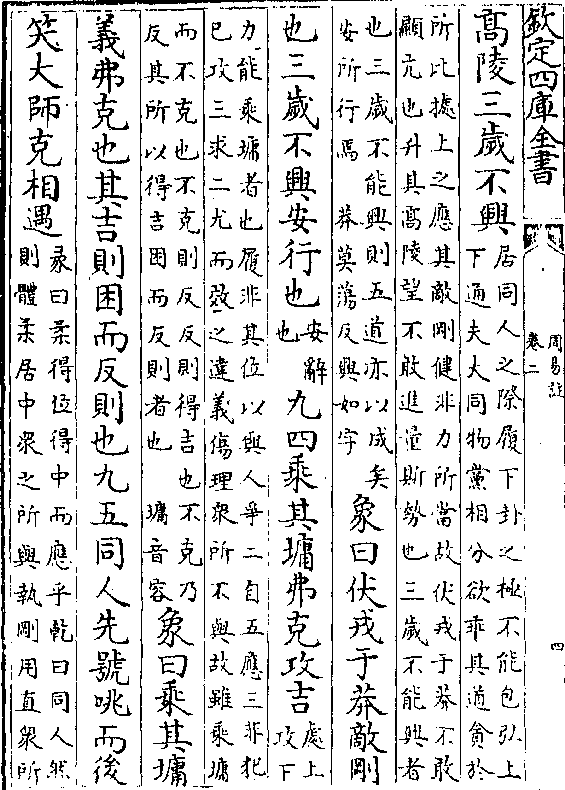 欽定四庫全書
周易註
卷二
四
髙陵三歲不興
居同人之際履下卦之極不能包弘上
下通夫大同物黨相分欲乖其道貪於
所比據上之應其敵剛健非力所當故伏戎于莽不敢
顯亢也升其髙陵望不敢進量斯勢也三歲不能興者
也三歲不能興則五道亦以成矣
安所行焉 莽莫蕩反興如字
象曰伏戎于莽敵剛
也三歲不興安行也
安辭
也
九四乘其墉弗克攻吉
處上
攻下
力能乘墉者也履非其位以與人爭二自五應三非犯
已攻三求二尤而效之違義傷理衆所不與故雖乘墉
而不克也不克則反反則得吉也不克乃
反其所以得吉困而反則者也 墉音容
象曰乘其墉
義弗克也其吉則困而反則也九五同人先號咷而後
笑大師克相遇
彖曰柔得位得中而應乎乾曰同人然
則體柔居中衆之所與執剛用直衆所